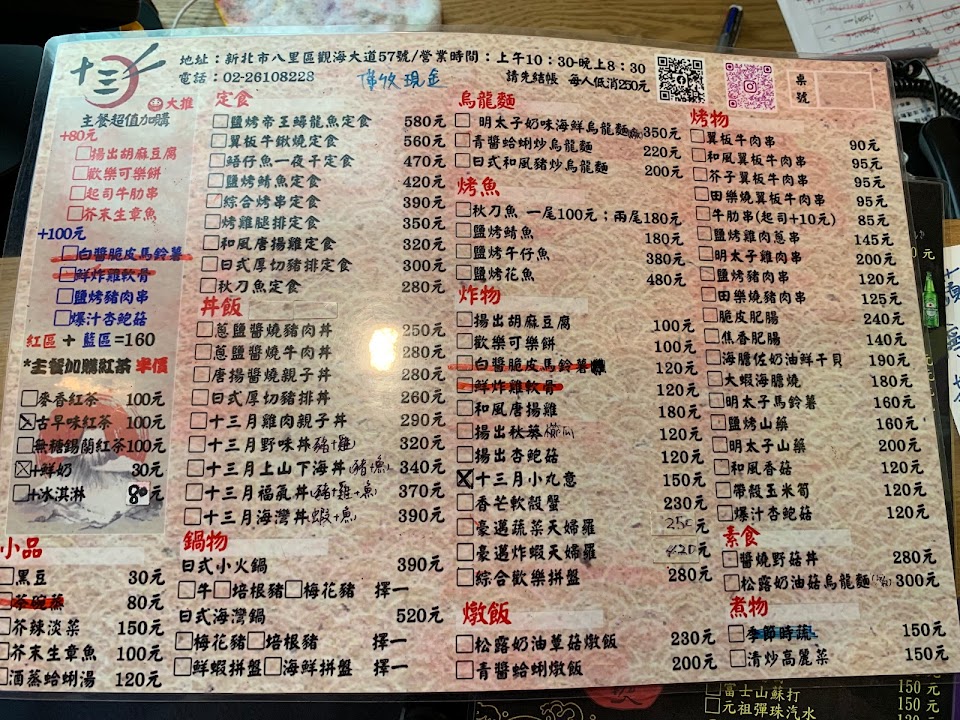 十三月
地址：新北市八里區觀海大道57號/營業時間：上午10：30-晚上8：30
電話：02-26108228
僅收現金
請先結帳 每人低消250元
桌號
大推
主餐超值加購
+80元
揚出胡麻豆腐
歡樂可樂餅
起司牛肋串
芥末生章魚
+100元
白醬脆皮馬鈴薯
鮮炸雞軟骨
鹽烤豬肉串
爆汁杏鮑菇
紅區 + 藍區=160
*主餐加購紅茶 半價
麥香紅茶 100元
古早味紅茶 100元
無糖錫蘭紅茶 100元
+鮮奶 30元
+冰淇淋 80元
小品
黑豆 30元
茶碗蒸 80元
芥辣淡菜 150元
芥末生章魚 100元
酒蒸蛤蜊湯 120元
定食
鹽烤帝王鱘龍魚定食 580元
翼板牛鍬燒定食 560元
鯃仔魚一夜干定食 470元
鹽烤鯖魚定食 420元
綜合烤串定食 390元
烤雞腿排定食 350元
和風唐揚雞定食 320元
日式厚切豬排定食 300元
秋刀魚定食 280元
丼飯
蔥鹽醬燒豬肉丼 250元
蔥鹽醬燒牛肉丼 280元
唐揚醬燒親子丼 280元
日式厚切豬排丼 260元
十三月雞肉親子丼 290元
十三月野味丼(豬+雞) 320元
十三月上山下海丼(豬+魚) 340元
十三月福氣丼(豬+雞+魚) 370元
十三月海灣丼(蝦+魚) 390元
鍋物
日式小火鍋 390元
牛 培根豬 梅花豬 擇一
日式海灣鍋 520元
梅花豬 培根豬 擇一
鮮蝦拼盤 海鮮拼盤 擇一
烏龍麵
明太子奶味海鮮烏龍麵 350元
青醬蛤蜊炒烏龍麵 220元
日式和風豬炒烏龍麵 200元
烤魚
秋刀魚 一尾100元；兩尾180元
鹽烤鯖魚 180元
鹽烤午仔魚 380元
鹽烤花魚 480元
炸物
揚出胡麻豆腐 100元
歡樂可樂餅 100元
白醬脆皮馬鈴薯 120元
鮮炸雞軟骨 120元
和風唐揚雞 180元
揚出秋葵 120元
揚出杏鮑菇 120元
十三月小丸意 150元
香芒軟殼蟹 230元
豪邁蔬菜天婦羅 250元
豪邁炸蝦天婦羅 420元
綜合歡樂拼盤 280元
燉飯
松露奶油蕈菇燉飯 230元
青醬蛤蜊燉飯 200元
烤物
翼板牛肉串 90元
和風翼板牛肉串 95元
芥子翼板牛肉串 95元
田樂燒翼板牛肉串 95元
牛肋串(起司+10元) 85元
鹽烤雞肉蔥串 145元
明太子雞肉串 200元
鹽烤豬肉串 120元
田樂燒豬肉串 125元
脆皮肥腸 240元
焦香肥腸 140元
海膽佐奶油鮮干貝 190元
大蝦海膽燒 180元
明太子馬鈴薯 160元
鹽烤山藥 160元
明太子山藥 200元
和風香菇 120元
帶殼玉米筍 120元
爆汁杏鮑菇 120元
素食
醬燒野菇丼 280元
松露奶油菇烏龍麵 300元
煮物
季節時蔬 150元
清炒高麗菜 150元
富士山蘇打 150元
元祖彈珠汽水 150元